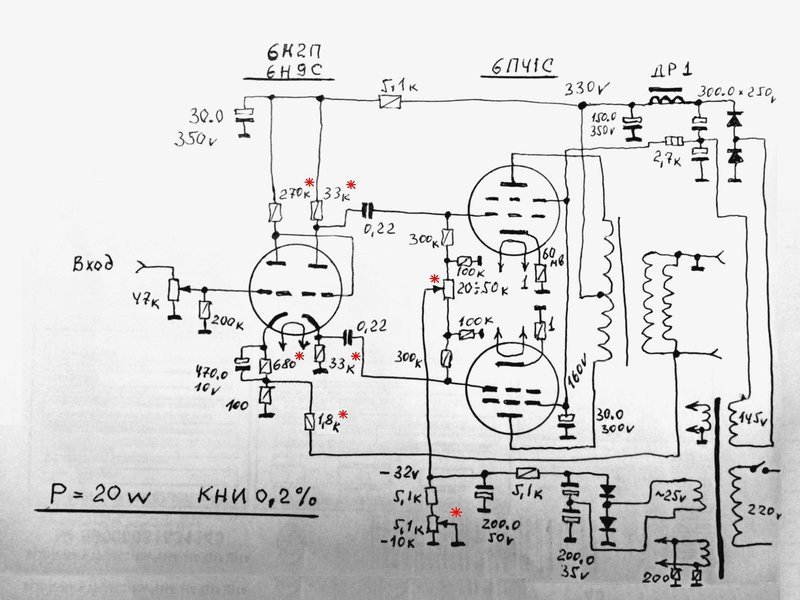 6Н2П
6Н9С
6П41С
ДР1
330v
5,1к
300.0 × 250v
30.0
350v
150.0
350v
2,7к
270к *
33к *
0,22
300к
100к
60
мв
1
* 20÷50к
Вход
47к
200к
0,22
100к
1
300к
680 *
33к *
470.0
10v
100
1,8к *
160v
30.0
300v
145v
-32v
5,1к
5,1к
~25v
220v
5,1к *
-10к
200.0
50v
200.0
35v
200
P = 20w КНИ 0,2%